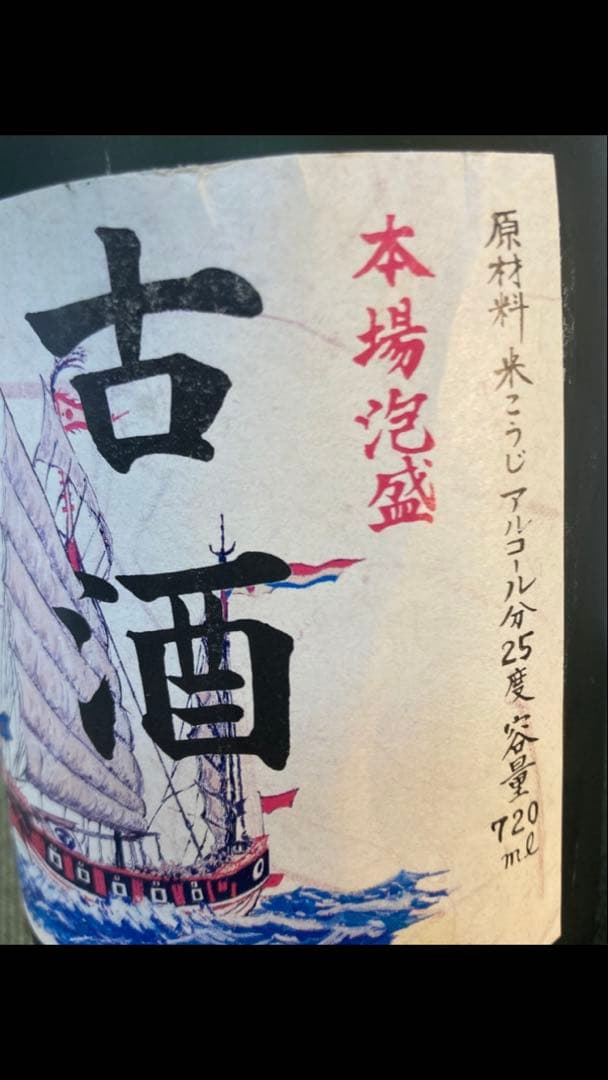 原材料 米こうじ アルコール分25度 容量720ml
本場泡盛
古酒